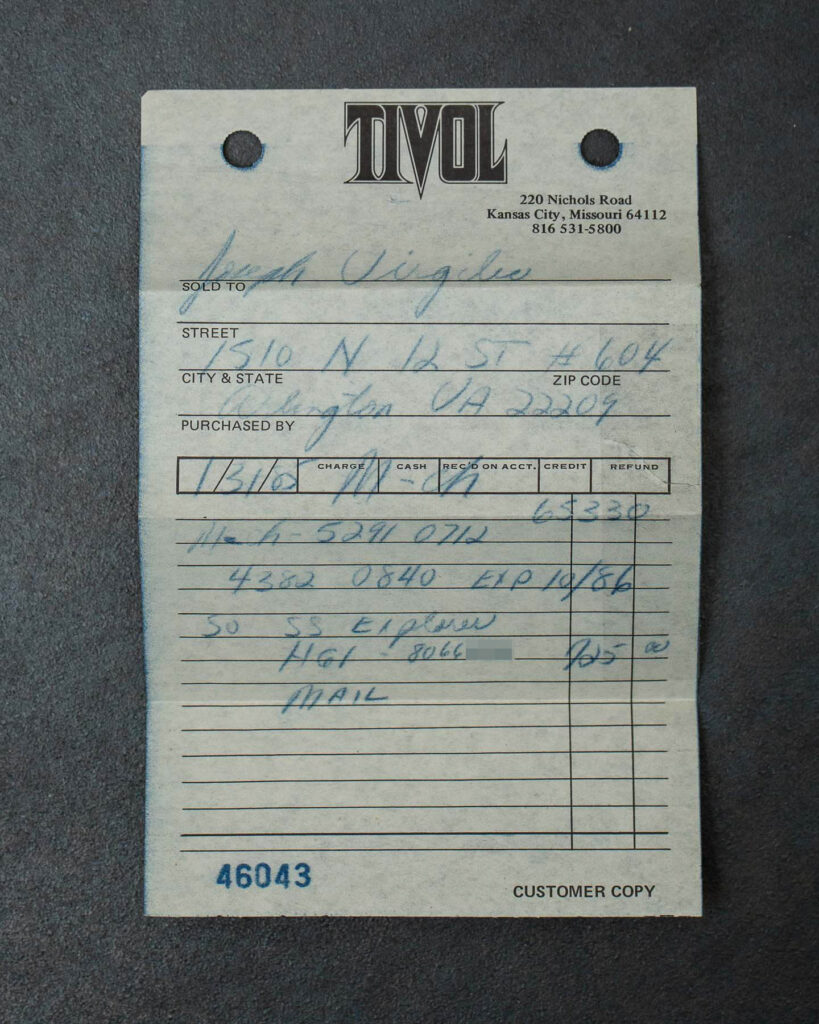 TIVOL
220 Nichols Road
Kansas City, Missouri 64112
816 531-5800
Joseph Virgilio
SOLD TO
STREET
1510 N 12 ST # 604
CITY & STATE ZIP CODE
Arlington VA 22209
PURCHASED BY
CHARGE CASH REC'D ON ACCT. CREDIT REFUND
1/31/85 M-ch
65330
M-ch - 5291 0712
4382 0840 EXP 10/86
SO SS Explorer
8066 725 00
MAIL
46043
CUSTOMER COPY